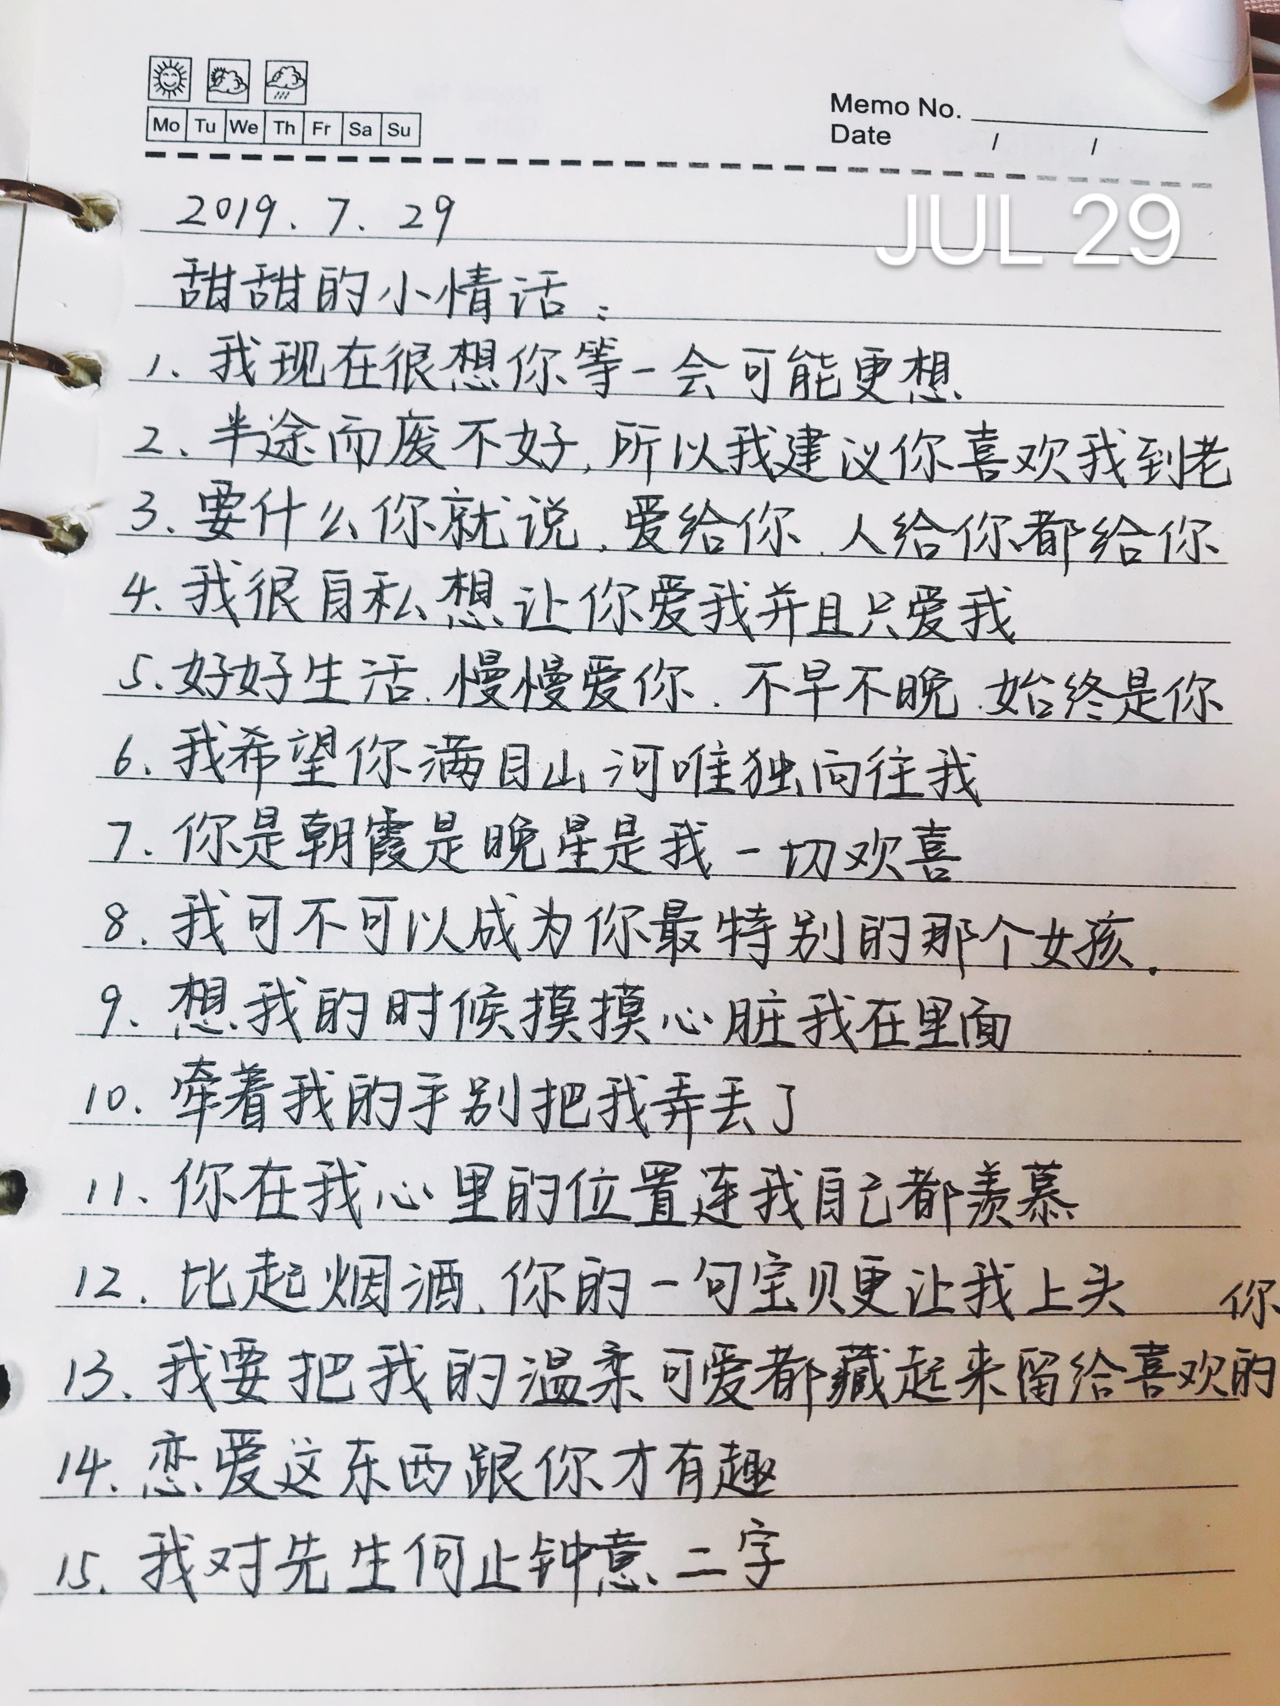 Mo Tu We Th Fr Sa Su
Memo No.
Date / /
2019.7.29
JUL 29
甜甜的小情话：
1. 我现在很想你等一会可能更想
2. 半途而废不好,所以我建议你喜欢我到老
3. 要什么你就说,爱给你,人给你都给你
4. 我很自私想让你爱我并且只爱我
5. 好好生活,慢慢爱你.不早不晚,始终是你
6. 我希望你满目山河唯独向往我
7. 你是朝霞是晚星是我一切欢喜
8. 我可不可以成为你最特别的那个女孩.
9. 想我的时候摸摸心脏我在里面
10. 牵着我的手别把我弄丢了
11. 你在我心里的位置连我自己都羡慕
12. 比起烟酒,你的一句宝贝更让我上头
13. 我要把我的温柔可爱都藏起来留给喜欢的你
14. 恋爱这东西跟你才有趣
15. 我对先生何止钟意二字